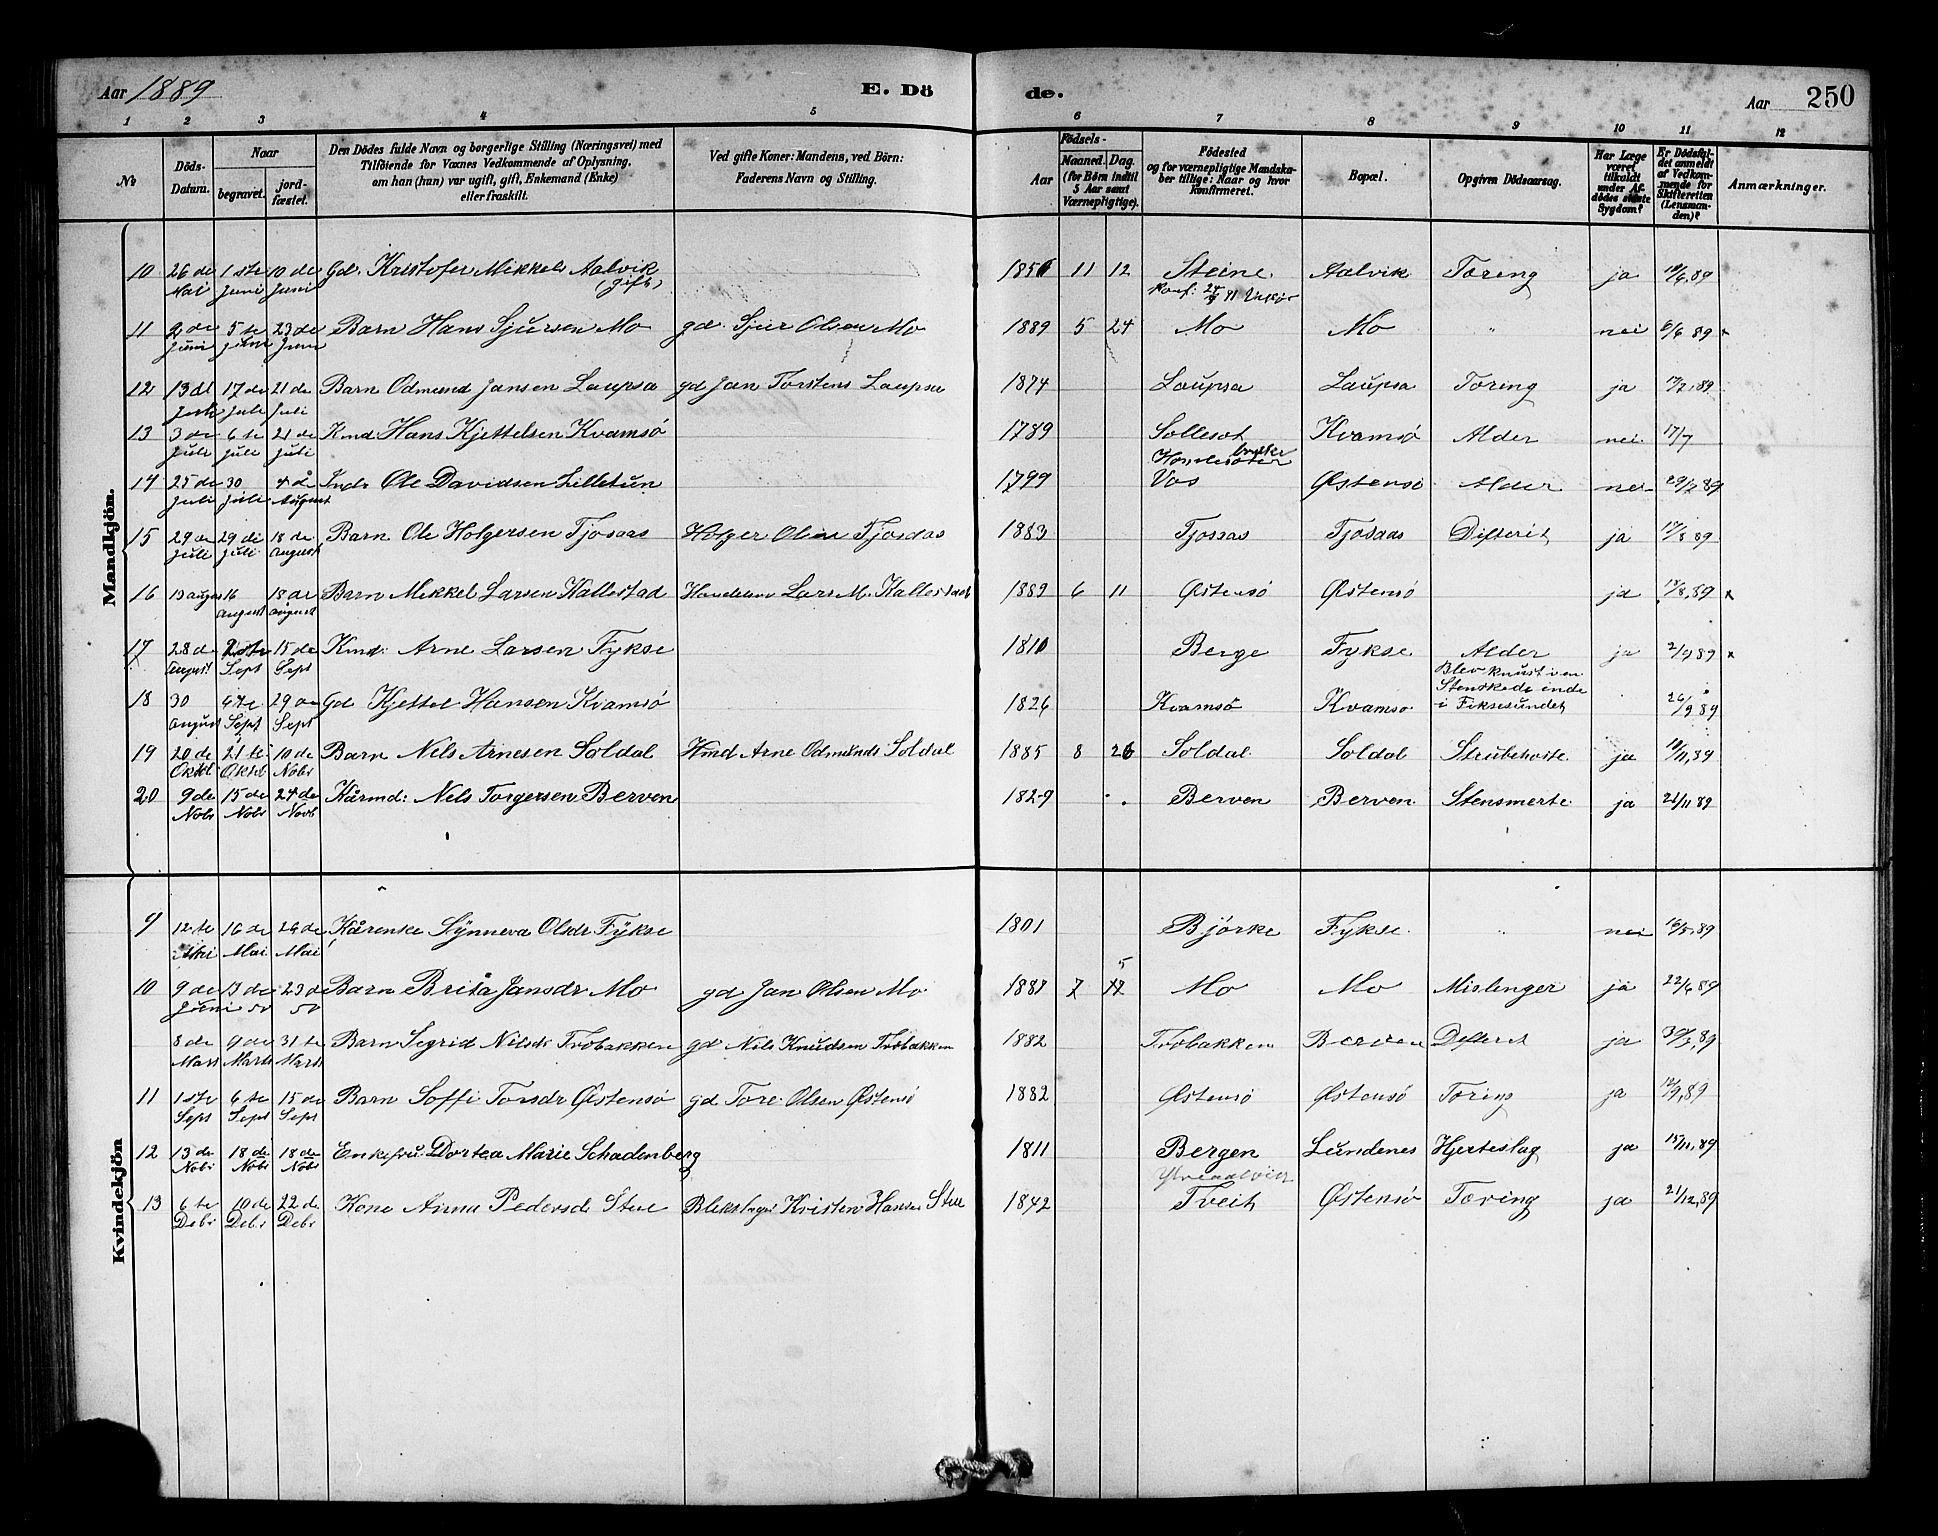 Aar 1889 E. Dö de. Aar 250
1 2 3 4 5 6 7 8 9 10 11 12
No Döds-Datum. Naar begravet. jordfæstet. Den Dödes fulde Navn og borgerlige Stilling (Næringsvei) med Tilföiende for Voxnes Vedkommende af Oplysning, om han (hun) var ugift, gift, Enkemand (Enke) eller fraskilt. Ved gifte Koner: Mandens, ved Börn: Faderens Navn og Stilling. Födsels- Aar Maaned. Dag. (for Börn indtil 5 Aar samt Værnepligtige). Födested og for værnepligtige Mandskaber tillige: Naar og hvor konfirmeret. Bopæl. Opgiven Dödsaarsag. Har Læge været tilkaldt under Afdödes sidste Sygdom? Er Dödsfaldet anmeldt af Vedkommende for Skifteretten (Lensmanden)? Anmærkninger.
Mandkjön.
10 26 de Mai 1ste Juni 10 de Juni Gd. Kristofer Mikkels Aalvik (gift) 11 12 Steine Aalvik Tæring ja
11 2 de Juni 5 te Juni 23 de Juni Barn Hans Sjursen Mo gd. Sjur Olsen Mo 1889 5 24 Mo Mo " nei 6/6 89 x
12 13 de Juli 17 de Juli 21 de Juli Barn Odmund Jansen Laupsa gd Jan Torstens Laupsa 1874 Laupsa Laupsa Tæring ja 17/7.89
13 3 de Juli 6 te Juli 21 de Juli Kmd. Hans Kjettelsen Kvamsö 1789 Kvamsö Alder nei 17/7
14 25 de Juli 30 Juli 4 de August Inds Ole Davidsen Lilletun 1799 Vos Östensö Alder nei 29/7 89
15 29 de Juli 29 de Juli 18 de August Barn Ole Holgersen Tjosaas Holger Olsen Tjosaas 1883 Tjosaas Tjosaas Difterit ja 17/8 89
16 13 august 16 August 18 de August Barn Mikkel Larsen Kallestad Handelsm Lars M. Kallestad 1889 6 11 Östensö Östensö ja 18/8.89 x
17 28 de August 2 Sept 15 de Sept Kmd: Arne Larsen Fykse 1810 Berge Fykse Alder ja 2/9 89 x
18 30 August 4 de Sept 29 de Sept Gd Kjettel Hansen Kvamsö 1826 Kvamsö Kvamsö Blev knust i en Stenskede inde i Fiksesundet 26/9 89
19 20 de Oktbr 21 te Oktbr 10 de Nobr Barn Nels Arnesen Soldal Hmd Arne Odmunds Soldal 1885 8 26 Soldal Soldal Strubehoste ja 10/11.89
20 9 de Nobr 15 de Nobr 24 de Novb Kårmd: Nels Torgersen Berven 1829 Berven Berven Stensmerte ja 21/11 89
Kvindekjön
9 12 te Mai 16 de Mai 26 de Mai Kårenke Synneva Olsdr Fykse 1801 Bjørke Fykse " nei 16/5.89
10 9 de Juni 13 de 23 de Barn Brita Jansdr Mo gd Jan Olsen Mo 7 5 Mo Mo Mislenger ja 22/6 89
8 de Mars 9 de Marts 31 te Marts Barn Segrid Nilsdr Trobakken gd Nils Knudsen Trobakken 1882 Trobakken Berven Defterit ja 30/3.89
11 1ste Sept 6 te Sept 15 de Sept Barn Soffi Torsdr Östensö gd Tore Olsen Östensö 1882 Östensö Östensö Tæring ja 12/9.89
12 13 de Nobr 18 de Nobr 18 de Nobr Enkefru: Dortea Marie Schadenberg 1811 Bergen Lundenes Hjerteslag ja 15/11.89
13 6 te Debr 10 de Debr 22 de Debr Kone Anna Pedersd Stue Blekslager Kristen Hansen Stue 1842 Tveit Östensö Tæring ja 21/12.89